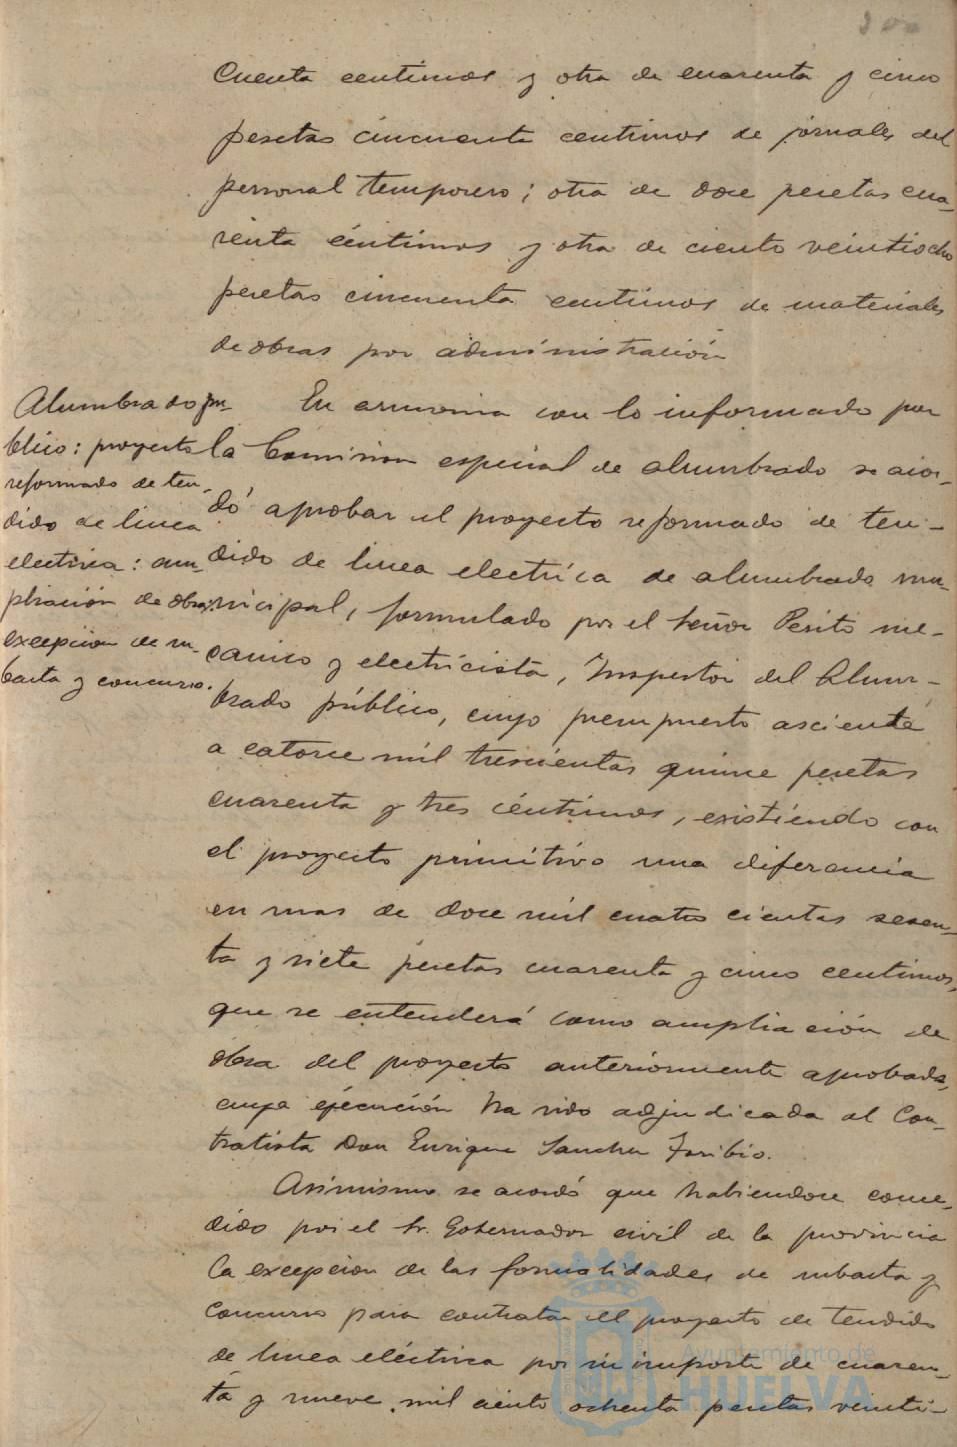 300
Cuenta centimos y otra de cuarenta y cinco
pesetas cincuenta centimos de jornales del
personal temporero; otra de doce pesetas cua-
renta céntimos y otra de ciento veintiocho
pesetas cincuenta centimos de materiales
de obras por administración
Alumbrado pu-
blico: proyecto
reformado de ten-
dido de linea
electrica: am-
pliación de obra:
excepcion de su-
basta y concurso.
En armonia con lo informado por
la Comision especial de alumbrado se acor-
dó aprobar el proyecto reformado de ten-
dido de linea electrica de alumbrado mu-
nicipal, formulado por el Señor Perito me-
canico y electricista, Inspector del Alum-
brado público, cuyo presupuesto asciende
a catorce mil trescientas quince pesetas
cuarenta y tres céntimos, existiendo con
el proyecto primitivo una diferencia
en mas de doce mil cuatro cientas sesen-
ta y siete pesetas cuarenta y cinco centimos,
que se entenderá como ampliación de
obra del proyecto anteriormente aprobado,
cuya ejecución ha sido adjudicada al Con-
tratista Don Enrique Sanchez Toribio.
Asimismo se acordó que habiendose conce-
dido por el Sr. Gobernador civil de la provincia
la excepcion de las formalidades de subasta y
concurso para contratar el proyecto de tendido
de linea eléctrica por su importe de cuaren-
ta y nueve mil ciento ochenta pesetas veinti-
Ayuntamiento de
HUELVA